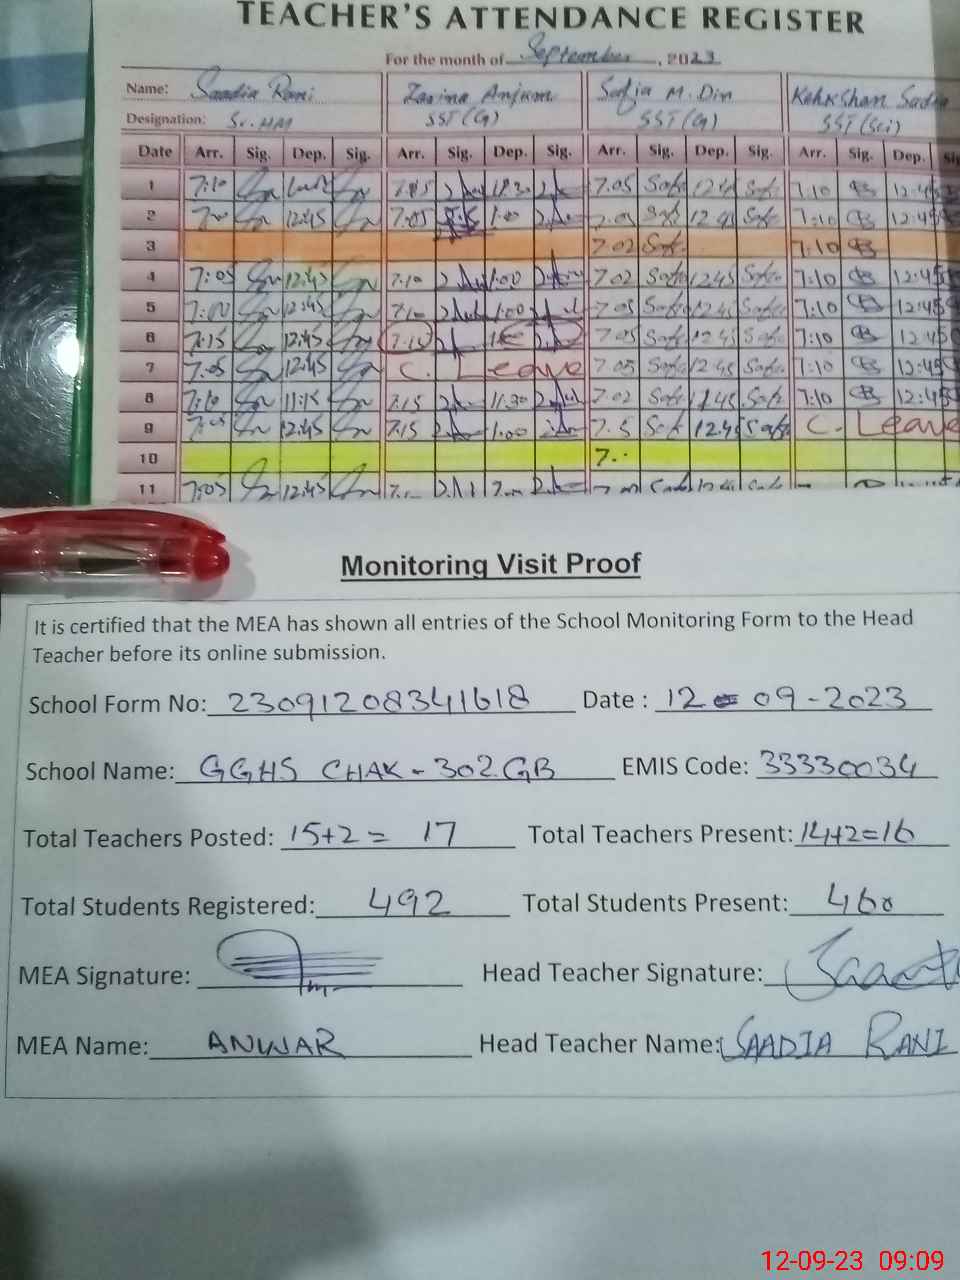 TEACHER'S ATTENDANCE REGISTER
For the month of September, 2023
Name: Saadia Rani Zarina Anjum Safia M. Din Kehkshan Sadia
Designation: Sr. HM SST(G) SST(G) SST(Sci)
Date Arr. Sig. Dep. Sig. Arr. Sig. Dep. Sig. Arr. Sig. Dep. Sig. Arr. Sig. Dep. Sig
1 7:10 7.05 7:10 12:45
2 12:45 7.05 1.00 7:10 12:45
3 7.02 Safi 7:10
4 7:05 12:45 7.10 1.00 7.02 Safi 12.45 Safi 7:10 12:45
5 7:00 12:45 1.00 7.05 Safi 12.45 Safi 7:10 12:45
6 7:15 12:45 7.10 7.05 Safi 12.45 Safi 7:10 12:45
7 7:05 12:45 C. Leave 7.05 Safi 12.45 Safi 7:10 12:45
8 7:10 11:15 7.15 11.30 7.02 Safi 11.45 Safi 7:10 12:45
9 12:45 7.15 1.00 7.5 Safi 12.45 Safi C. Leave
10 7.
11 7:05 12:45
Monitoring Visit Proof
It is certified that the MEA has shown all entries of the School Monitoring Form to the Head
Teacher before its online submission.
School Form No: 23091208341618 Date : 12-09-2023
School Name: GGHS CHAK-302.GB EMIS Code: 33330034
Total Teachers Posted: 15+2= 17 Total Teachers Present: 14+2=16
Total Students Registered: 492 Total Students Present: 460
MEA Signature: Head Teacher Signature:
MEA Name: ANWAR Head Teacher Name: SAADIA RANI
12-09-23 09:09